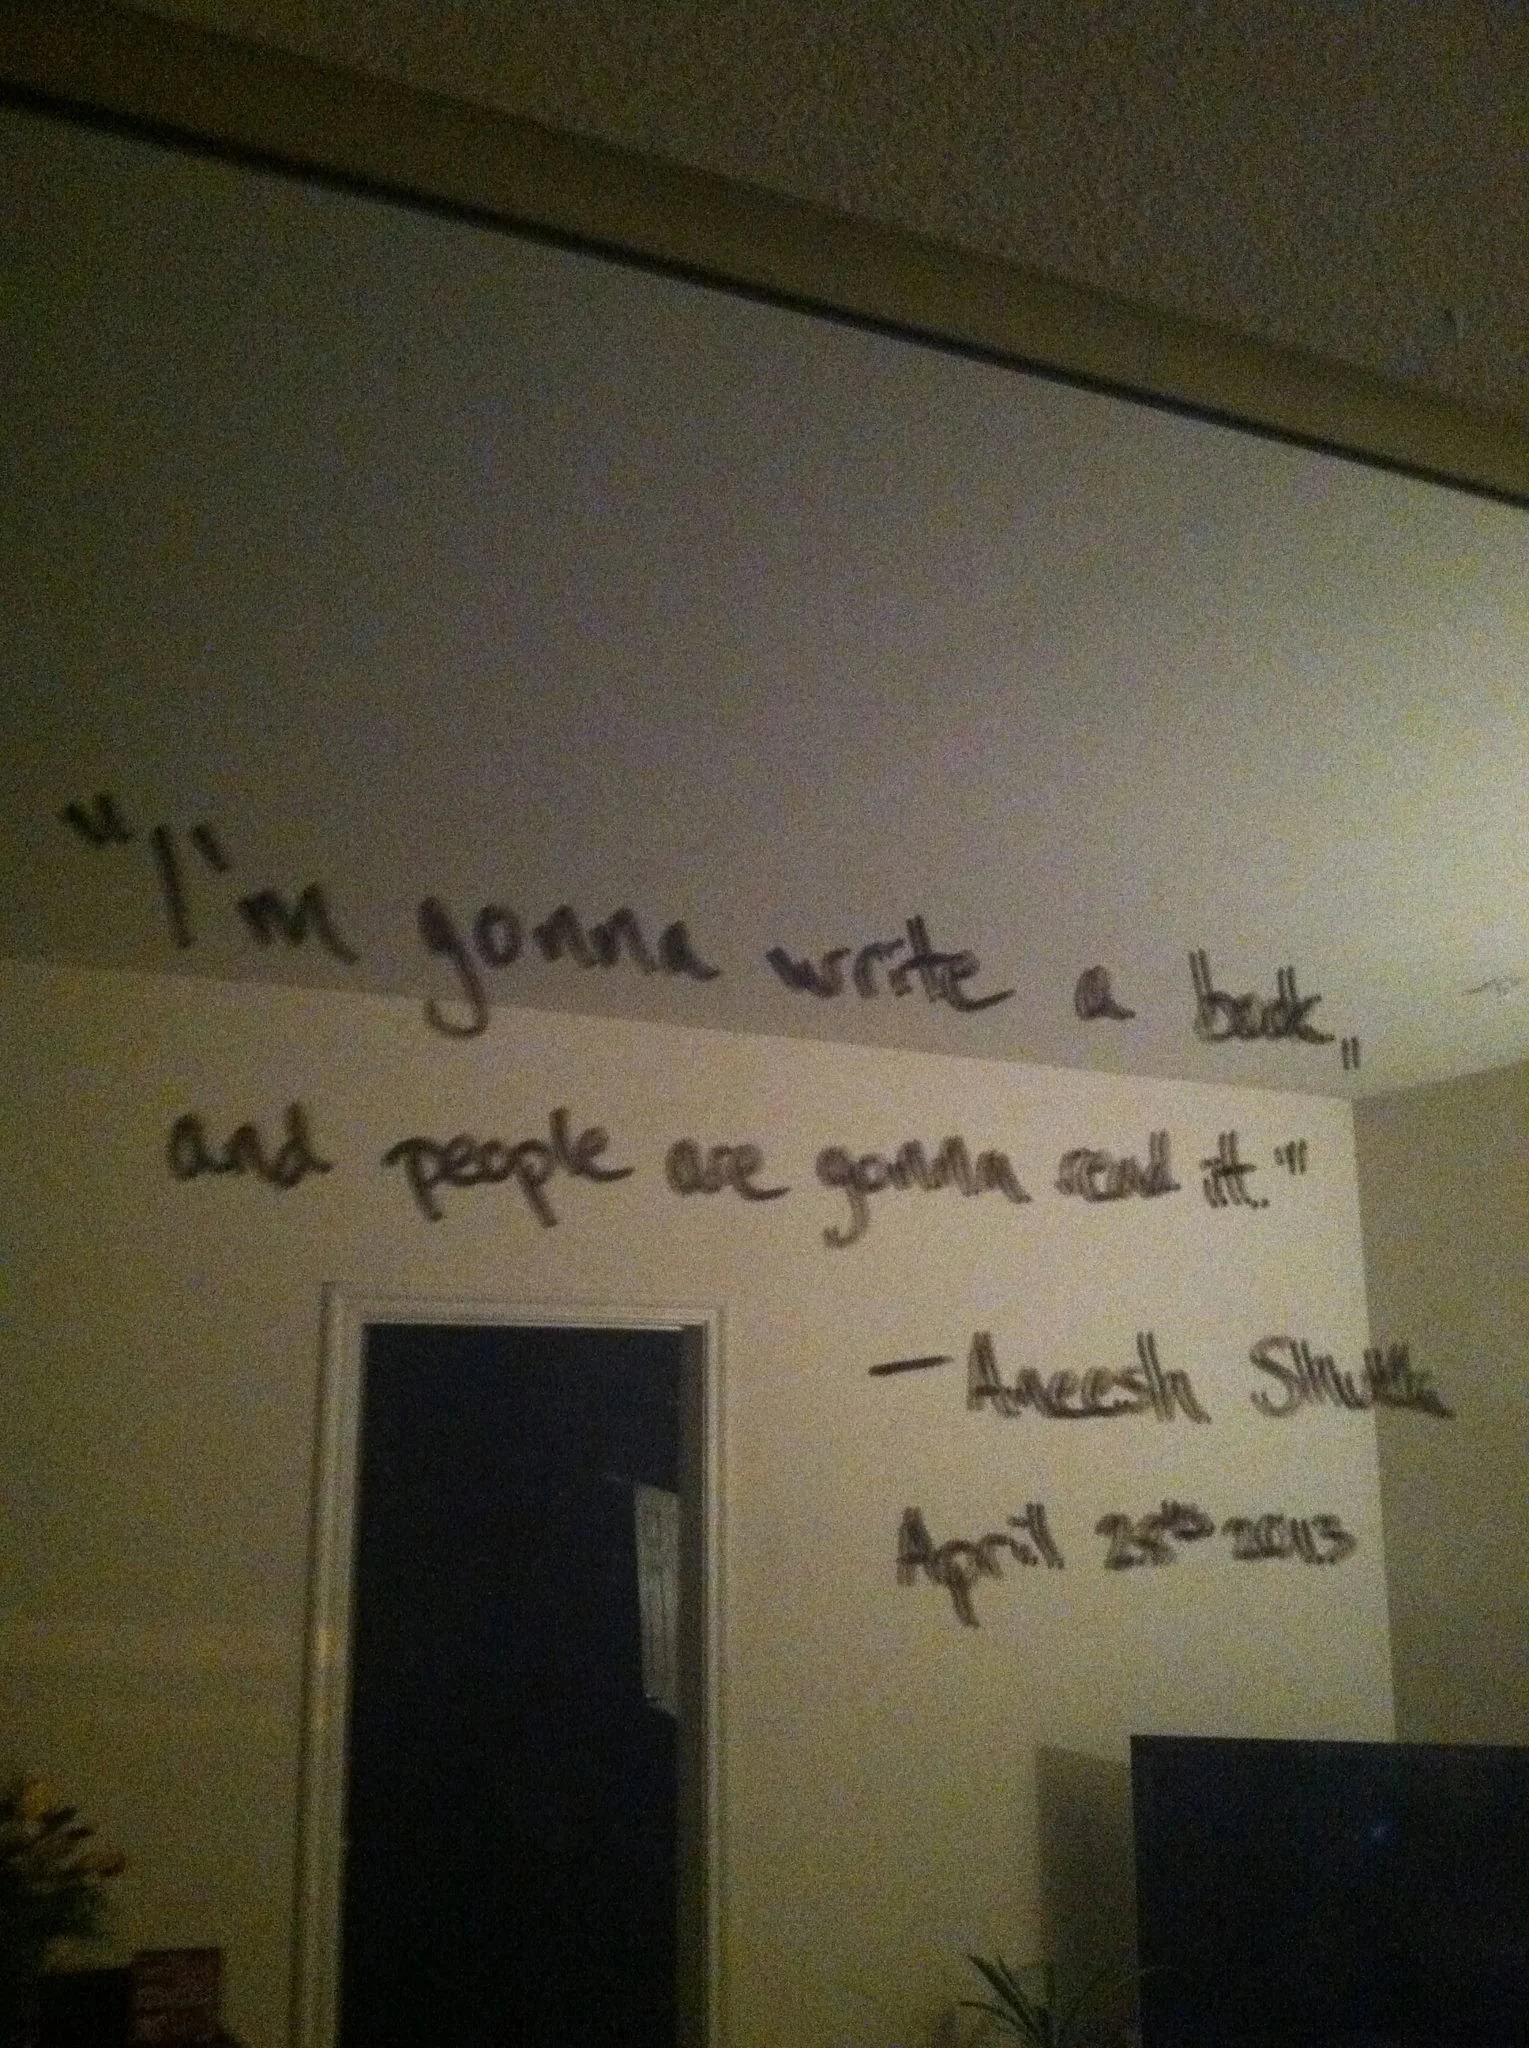 "I'm gonna write a book,
and people are gonna read it."
— Aneesh Shukla
April 25th 2013